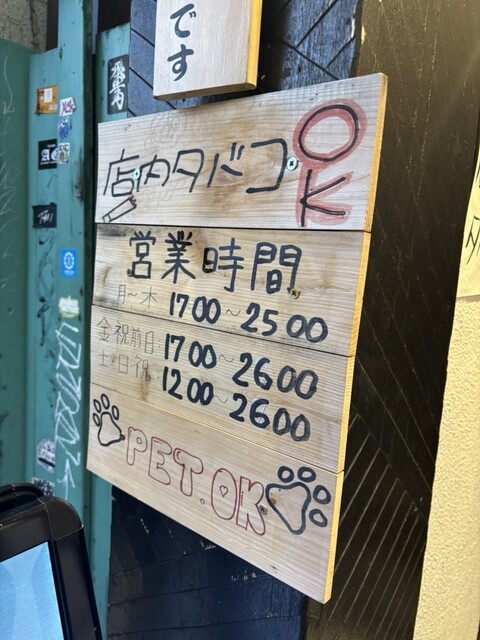 です
店内タバコOK
営業時間
月〜木 1700〜2500
金・祝前日 1700〜2600
土・日・祝 1200〜2600
PET.OK